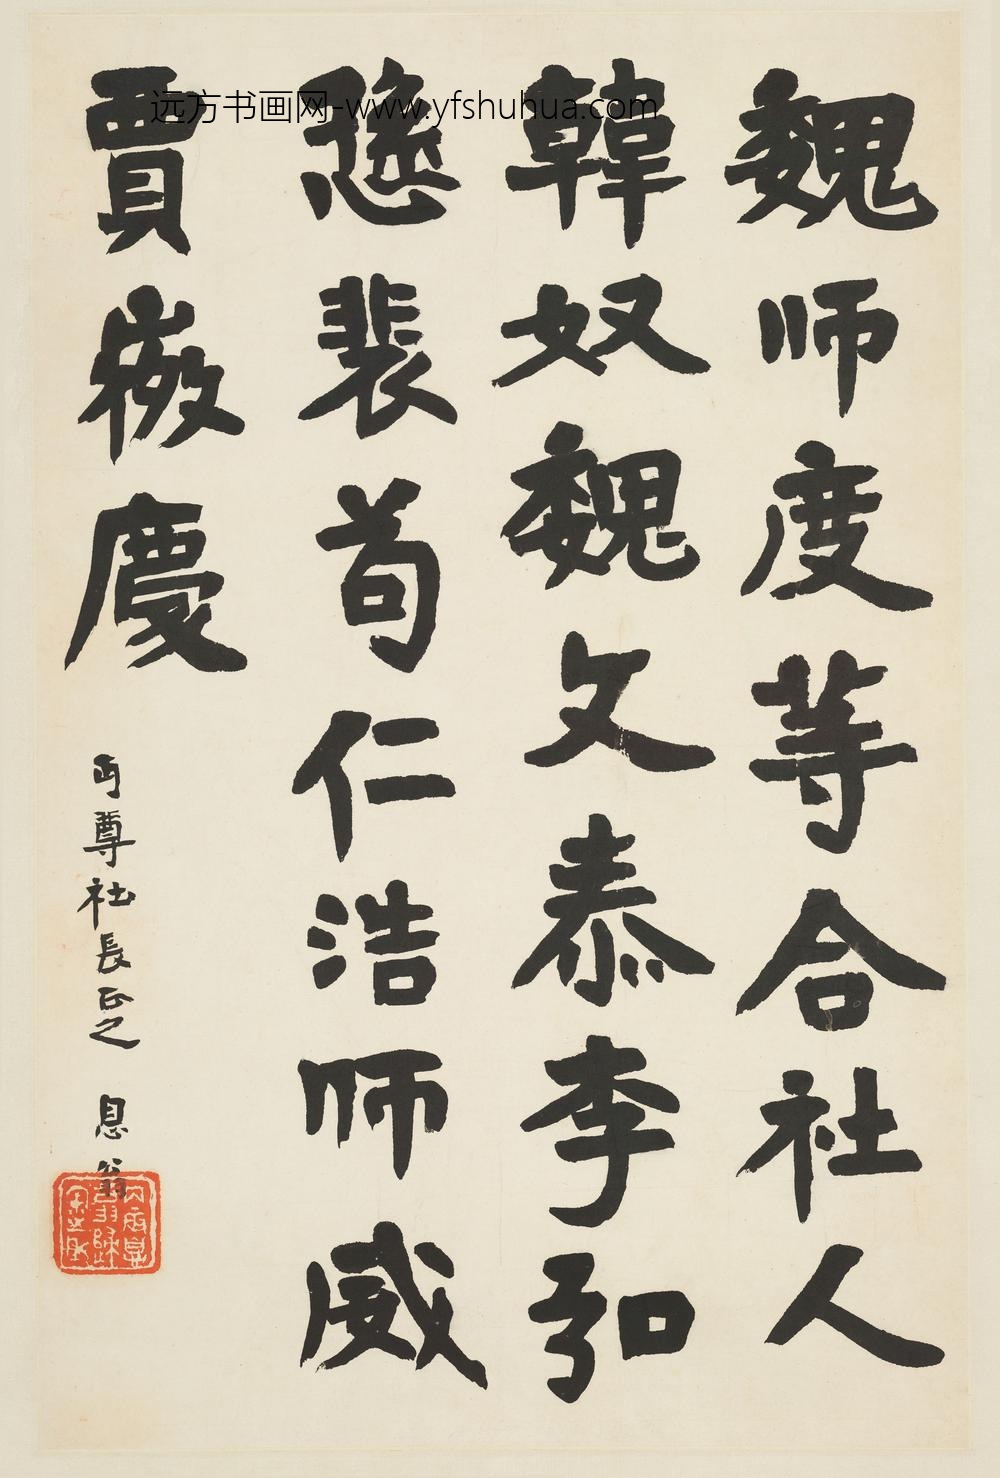 魏师度等合社人
韓奴魏文泰李弘
裴荀仁浩师威
賈嶶慶
丏尊社長正之 息翁
远方书画网-www.yfshuhua.com